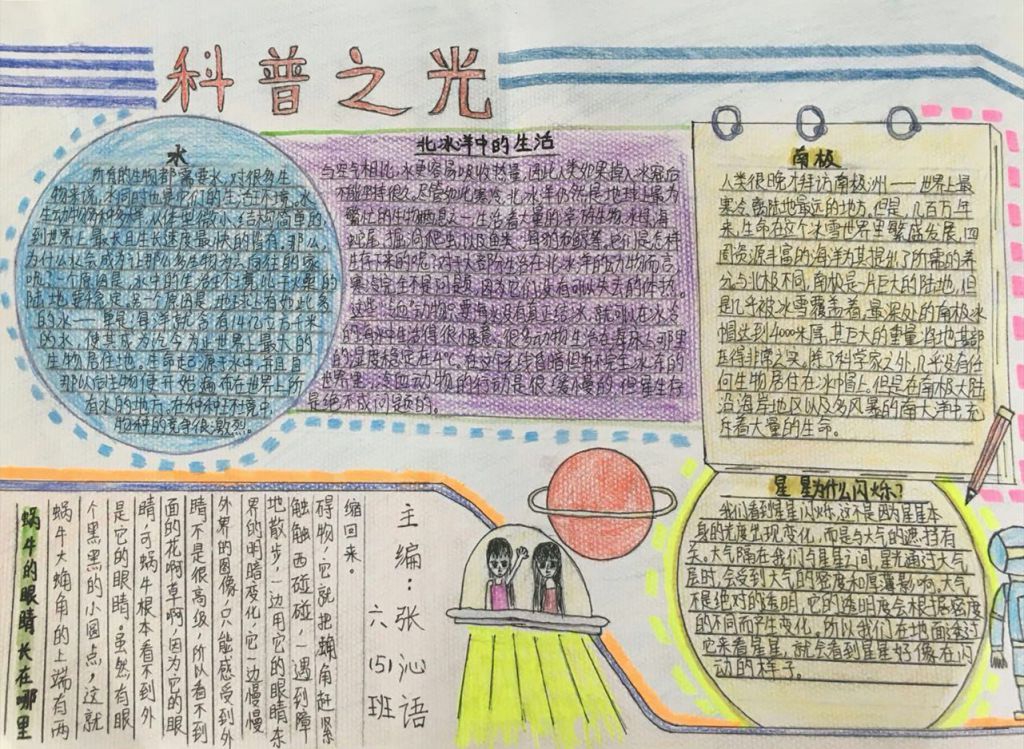 科普之光
水
所有的生物都需要水,对很多生
物来说,水同时也是它们的生活环境。水
生动物物种多样,从体型微小、结构简单的
到世界上最长且生长速度最快的皆有。那么,
为什么水会成为让那么多生物为之向往的家
呢?一个原因是,水中的生活生个环境,比于火累的
陆地要稳定。另一个原因是,地球上有如此多
的水——单是海洋就含有14亿立方千米
的水,使其成为迄今为止世界上最大的
生物居住地。生命起源于水中,并且直
那以后生物便开始遍布在世界上所
有水的地方。在种种上环境中,
物种的竞争很激烈。
北冰洋中的生活
与空气相比,水更容易吸收热量,因此人类如果掉入冰窟后
不能坚持很久。尽管如此寒冷,北冰洋仍然是地球上最为
繁忙的生物栖息之一生活着大量的浮游生物、水母、海
蛇尾、掘洞爬虫,以及鱼类、海豹和鲸等。它们是怎样
生存下来的呢?对于大部份生活在北冰洋的动物而言,
寒冷完全不是问题,因为它们没有可以失去的体热。
这些冷血动物只要海水没有真正结冰,就可以在冰冷
的海水中生活得很惬意。很多动物生活在海床上,那里
的温度稳定在4℃。在这个光线昏暗但并不完全冰冻的
世界里,冷血动物的行动是很缓慢的,但是生存
是绝不成问题的。
南极
人类很晚才拜访南极洲——世界上最
寒冷、离陆地最远的地方。但是,几百万年
来,生命在这个冰雪世界里繁盛发展,四
周资源丰富的海洋为其提供了所需的养
分。与北极不同,南极是一片巨大的陆地,但
是几乎被冰雪覆盖着。最深处的南极冰
帽达到4000米厚,其巨大的重量将地基部
压得非常之实。除了科学家之外,几乎没有任
何生物居住在冰中島上,但是在南极大陆
沿海岸地区以及多风暴的南大洋中充
斥着大量的生命。
星星为什么闪烁?
我们看到星星闪烁,这不是因为星星本
身的光度出现变化,而是与大气的遮挡有
关。大气隔在我们与星星之间,星光通过大气
层时,会受到大气的密度和厚薄影响。大气
不是绝对的透明,它的透明度会根据密度
的不同而产生变化。所以我们在地面透过
它来看星星,就会看到星星好像在闪
动的样子。
主编:张沁语
六(5)班
蜗牛的眼睛长在哪里
蜗牛大蜗角的上端有两
个黑黑的小圆点,这就
是它的眼睛。虽然有眼
睛,可蜗牛根本看不到外
面的花啊草啊,因为它的眼
睛不是很高级,所以看不到
外界的图像,只能感受到外
界的明暗变化。它一边慢慢
地散步,一边用它的眼睛东
触触西碰碰,一遇到障
碍物,它就把蜗角赶紧
缩回来。